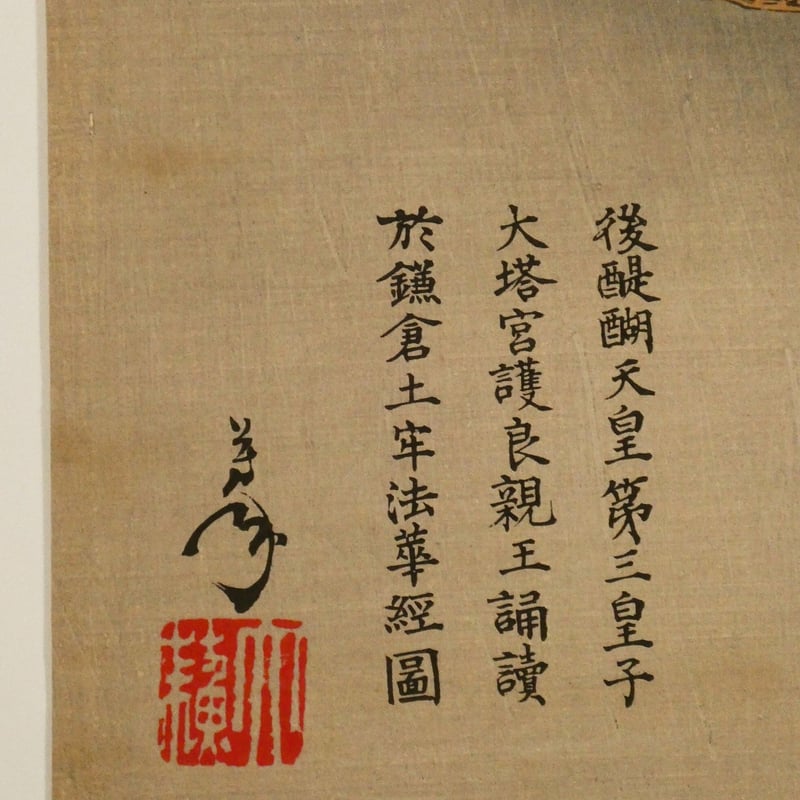 後醍醐天皇第三皇子
大塔宮護良親王誦讀
於鎌倉土牢法華經圖